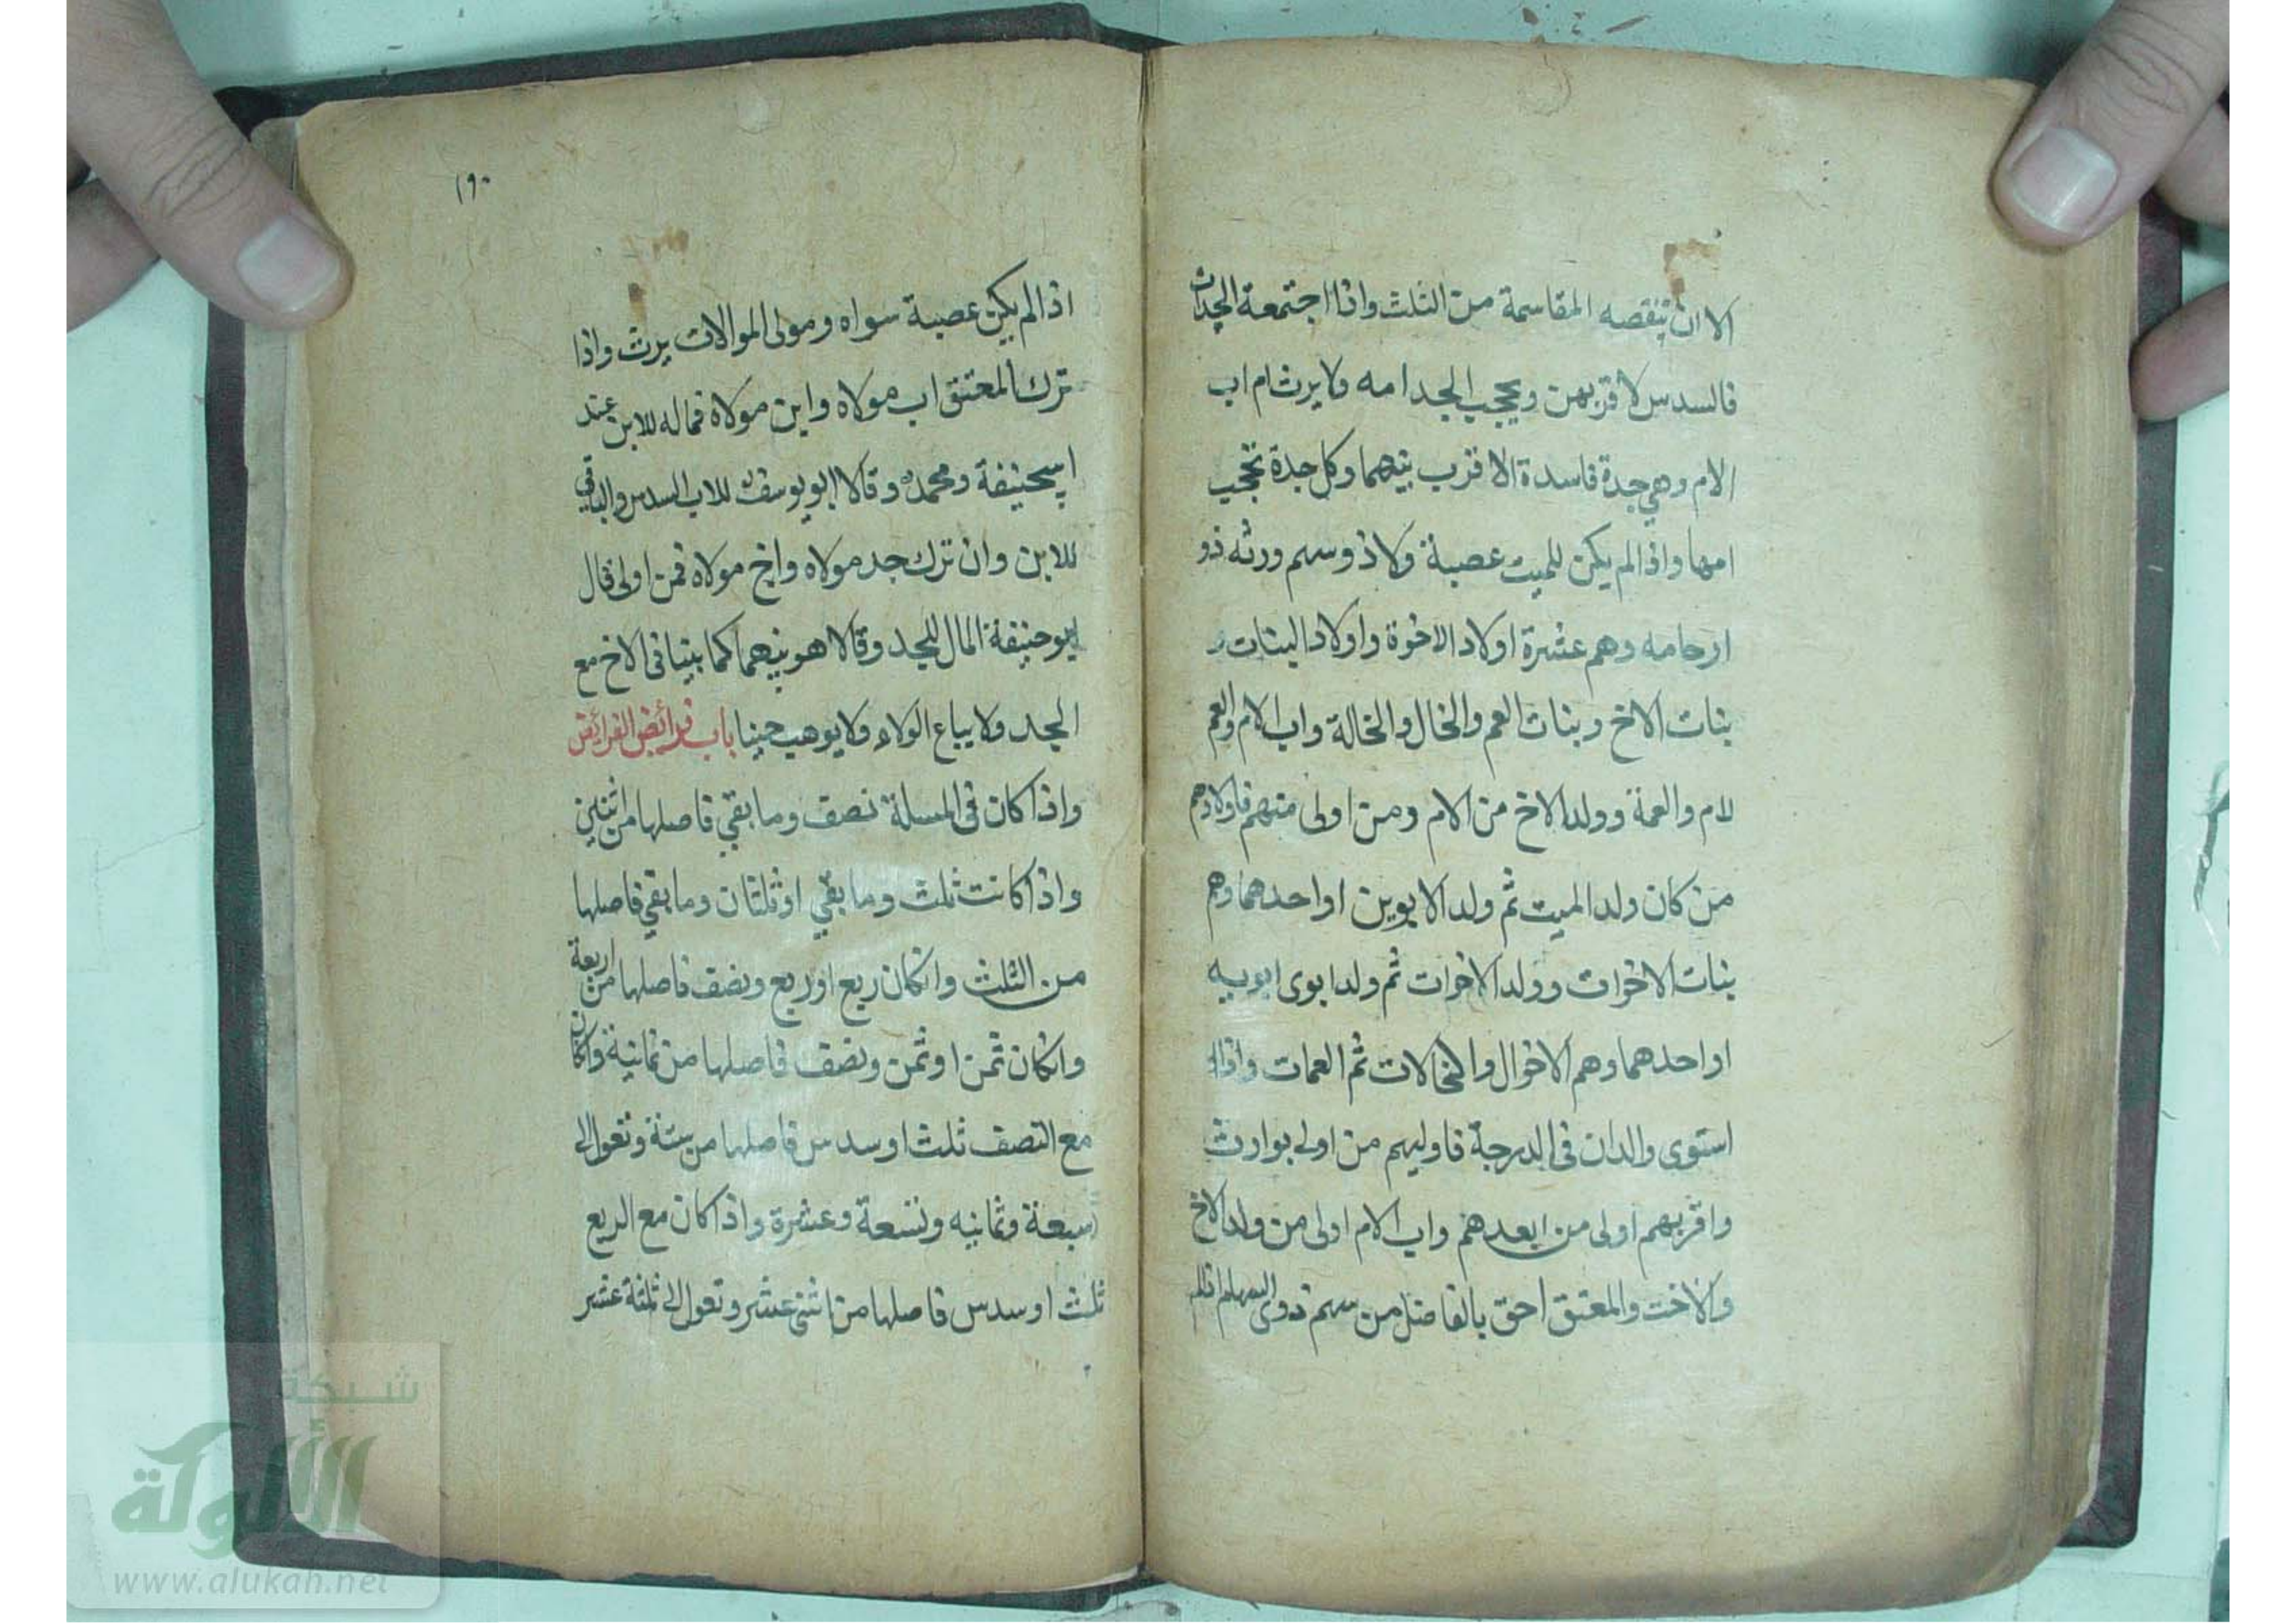 الا ان تنقصه المقاسمة من الثلث واذا اجتمعة الجدات
فالسدس لاقربهن ويحجب الجد امه ولا يرث ام اب
الام وهي جدة فاسدة الا قرب بينهما وكل جدة تحجب
امها واذا لم يكن للميت عصبة ولا ذو سهم ورثه ذو
ارحامه وهم عشرة اولاد الاخوة واولاد البنات و
بنات الاخ وبنات العم والخال والخالة واب الام والعم
لام والعمة وولد الاخ من الام ومن اولى منهم فاولادهم
من كان ولد الميت ثم ولد الابوين او احدهما وهم
بنات الاخوات وولد الاخوات ثم ولد ابوى ابويه
او احدهما وهم الاخوال والخالات ثم العمات واذا
استوى والدان فى الدرجة فاوليهم من اولى بوارث
واقربهم اولى من ابعدهم واب الام اولى من ولد الاخ
والاخت والمعتق احق بالفاضل من سهم ذوى السهام
١٩٠
اذا لم يكن عصبة سواه ومولى الموالات يرث واذا
ترك المعتق اب مولاه وابن مولاه فماله للابن عند
ابيحنيفة ومحمد وقالا ابو يوسف للاب السدس والباقي
للابن وان ترك جد مولاه واخ مولاه فمن اولى قال
ابو حنيفة المال للجد وقالا هو بينهما كما بينا فى الاخ مع
الجد ولا يباع الولاء ولا يوهب حينا باب فرائض الفرائض
واذا كان فى المسلة نصف وما بقي فاصلها من اثنين
واذا كانت ثلث وما بقي او ثلثان وما بقي فاصلها
من الثلث وانكان ربع او ربع ونصف فاصلها من اربعة
وانكان ثمن او ثمن ونصف فاصلها من ثمانية وانكان
مع النصف ثلث او سدس فاصلها من ستة وتعول الى
سبعة وثمانيه وتسعة وعشرة واذا كان مع الربع
ثلث او سدس فاصلها من اثنى عشر وتعول الى ثلثة عشر
شبكة
الألوكة
www.alukah.net